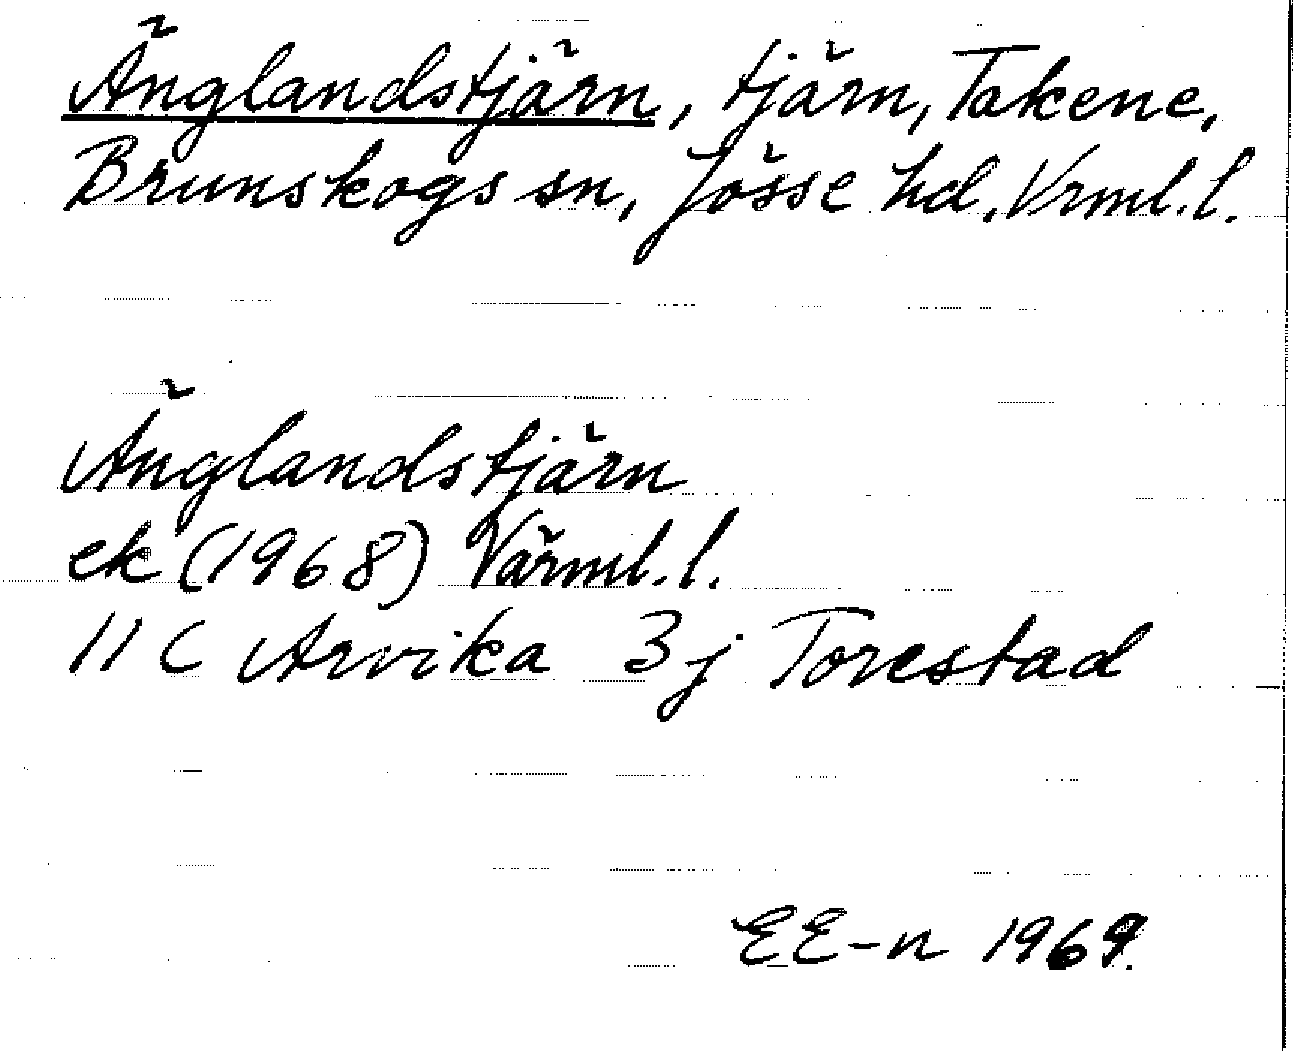 Änglandstjärn, tjärn, Takene,
Brunskogs sn, Jösse hd. Vrml. l.
Änglandstjärn
ek (1968) Värml. l.
11 C Arvika 3j Torestad
EE-n 1969.